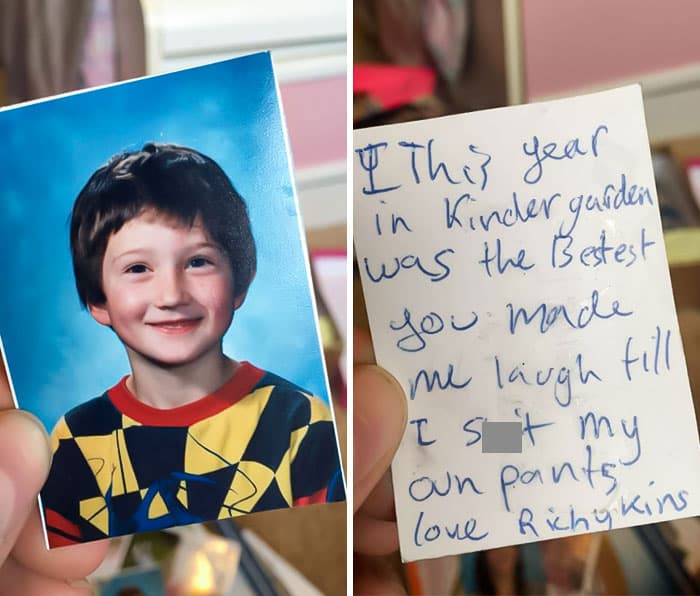 I This year
in Kinder garden
was the Bestest
you made
me laugh till
I s t my
own pants
love Richykins